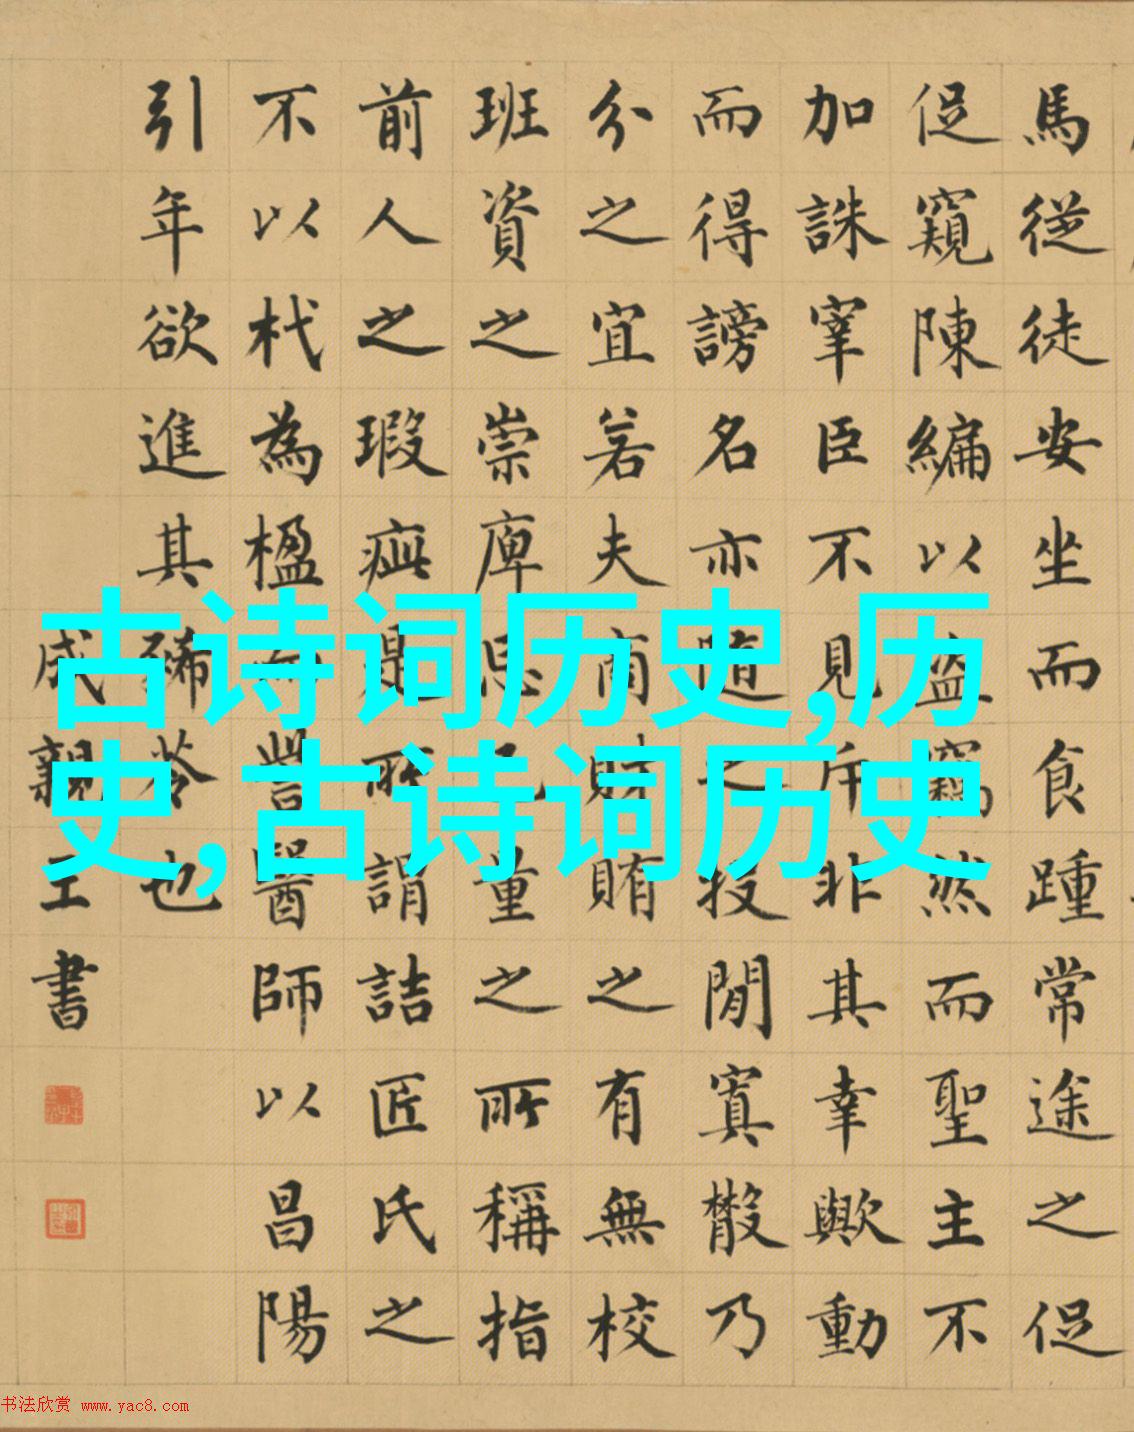 馬從徒安坐而食踵常途之促
促窺陳編以盜竊然而聖主不
加誅宰臣不見斥非其幸歟動
而得謗名亦随之投閒寘散乃
分之宜若夫商財賄之有無校
班資之崇庳忘己量之所稱指
前人之瑕疵是所謂詰匠氏之
不以杙為楹而訾醫師以昌陽
引年欲進其豨苓也
成親王書
古诗词历史,历
史,古诗词历史
书法欣赏 www.yac8.com